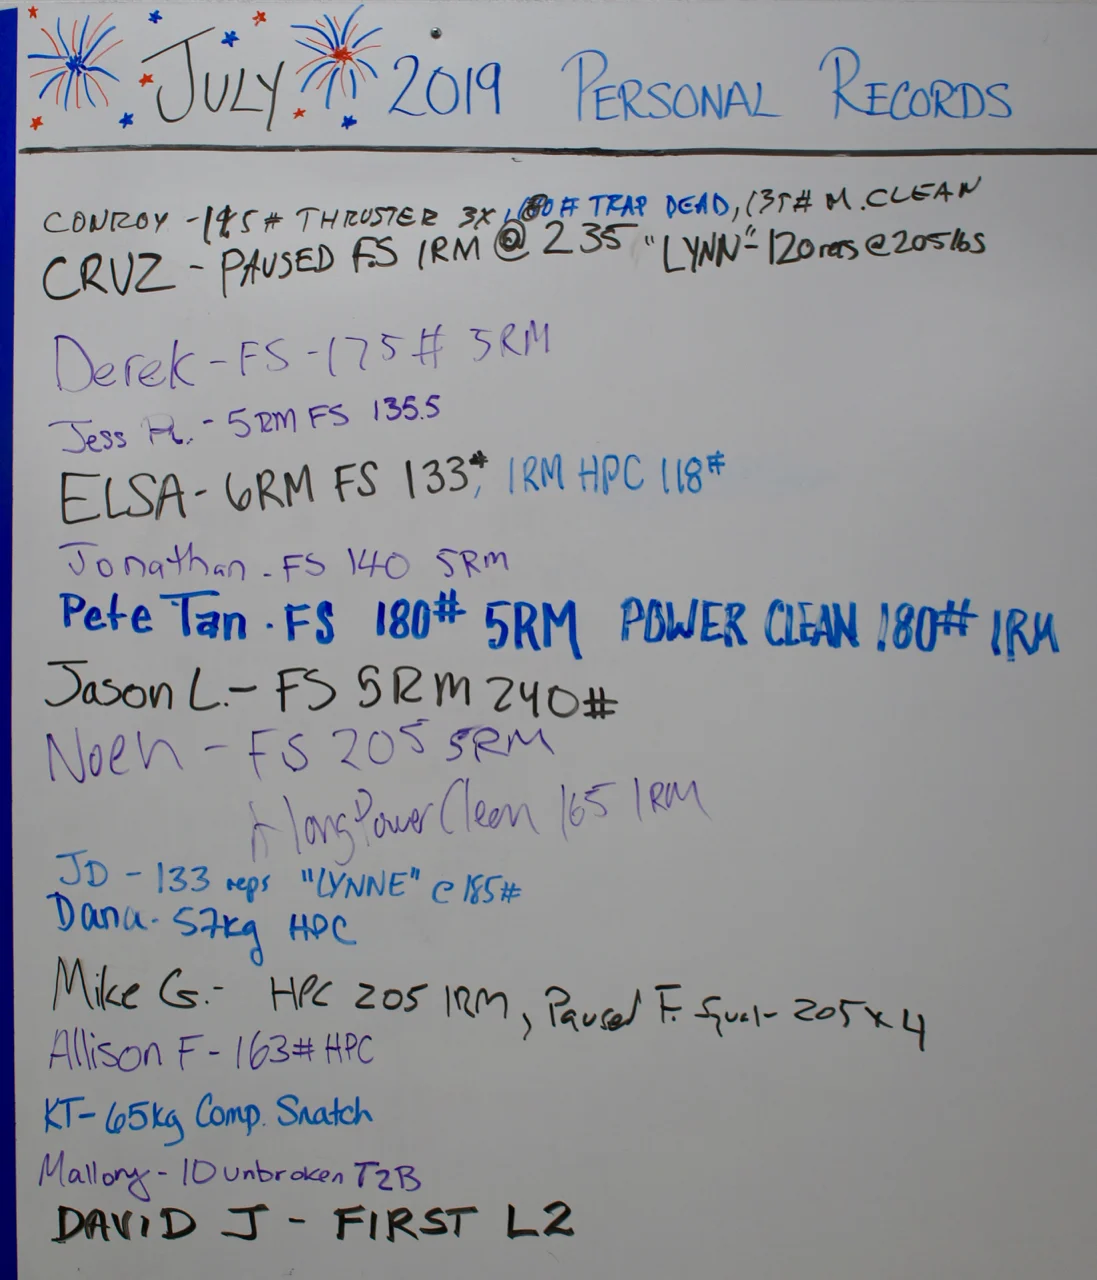 JULY 2019 PERSONAL RECORDS
CONROY - # THRUSTER 3X, # TRAP DEAD, 135# M. CLEAN
CRUZ - PAUSED FS 1RM @ 235 "LYNN" - 120 reps @ 205 lbs
Derek - FS - 175# 5RM
Jess R. - 5RM FS 135.5
ELSA - 6RM FS 133#, 1RM HPC 118#
Jonathan - FS 140 5RM
Pete Tan - FS 180# 5RM POWER CLEAN 180# 1RM
Jason L. - FS 5RM 240#
Noeh - FS 205 5RM
Hang Power Clean 165 1RM
JD - 133 reps "LYNNE" @ 185#
Dana - 57kg HPC
Mike G. - HPC 205 1RM, Paused F. Squat - 205 x 4
Allison F - 163# HPC
KT - 65kg Comp. Snatch
Mallory - 10 unbroken T2B
DAVID J - FIRST L2